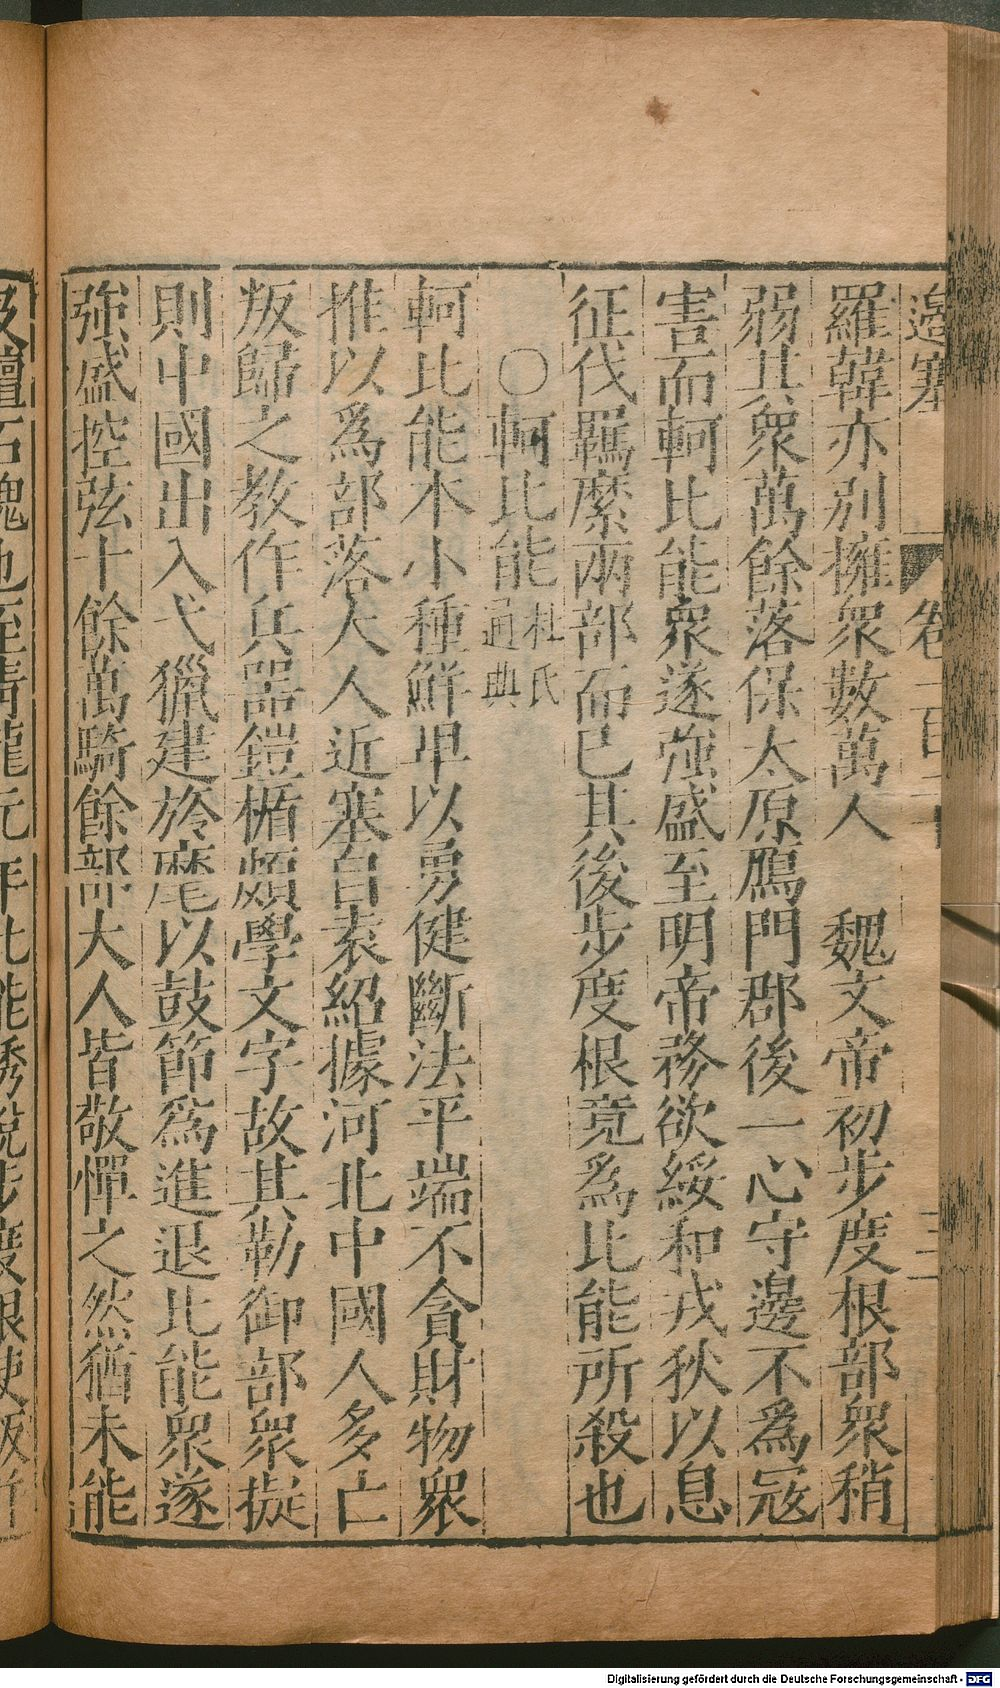 邉塞
卷一百
羅韓亦别擁衆數萬人　魏文帝初步度根部衆稍
弱其衆萬餘落保太原鴈門郡後一心守邊不爲冦
害而軻比能衆遂強盛至明帝務欲綏和戎狄以息
征伐羈縻兩部而已其後步度根竟爲比能所殺也
〇軻比能杜氏通典
軻比能本小種鮮卑以勇健斷法平端不貪財物衆
推以爲部落大人近塞自袁紹據河北中國人多亡
叛歸之教作兵器鎧楯頗學文字故其勒御部衆擬
則中國出入弋獵建旍麾以鼓節爲進退比能衆遂
強盛控弦十餘萬騎餘部大人皆敬憚之然猶未能
及檀石槐也至青龍元年比能誘說步度根使叛
Digitalisierung gefördert durch die Deutsche Forschungsgemeinschaft - DFG